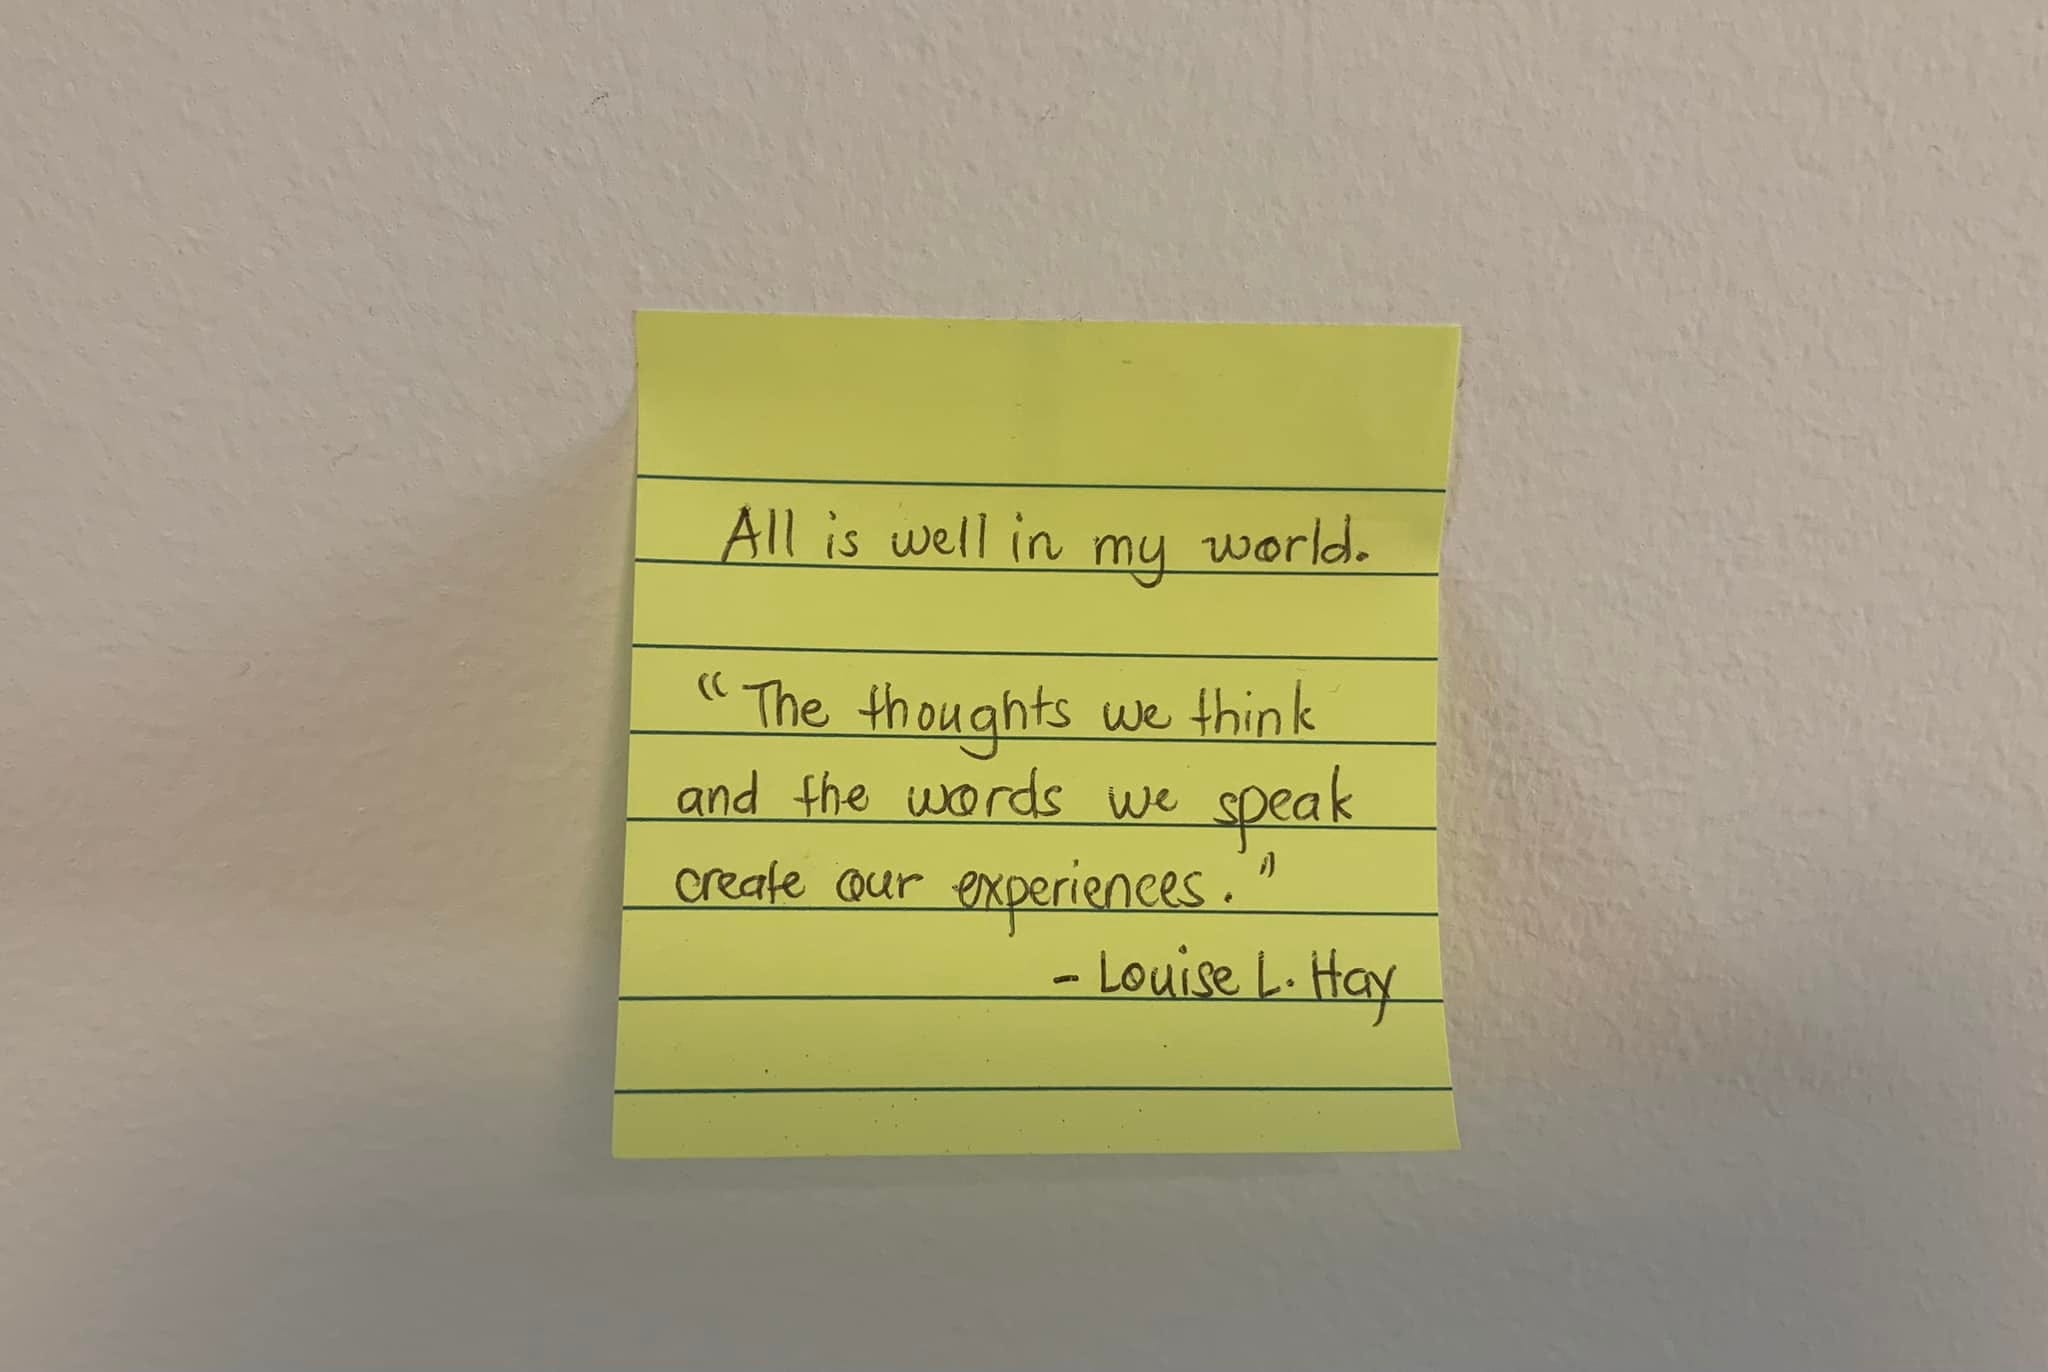 All is well in my world.
“The thoughts we think
and the words we speak
create our experiences.”
- Louise L. Hay